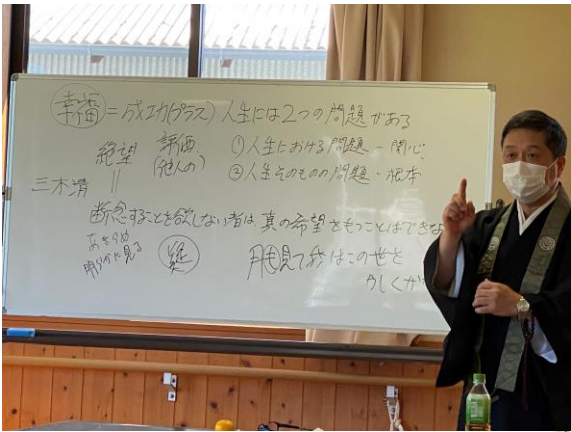 幸福=成功(プラス) 人生には2つの問題がある
絶望 評価 ①人生における問題－関心
三木清 || (他人の) ②人生そのものの問題・根本
断念することを欲しない者は真の希望をもつことはできな
あきらめ
明らかに見る
月も見て我はこの世を
かしくかな